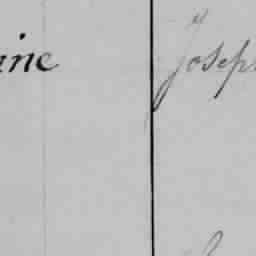 ine Josep